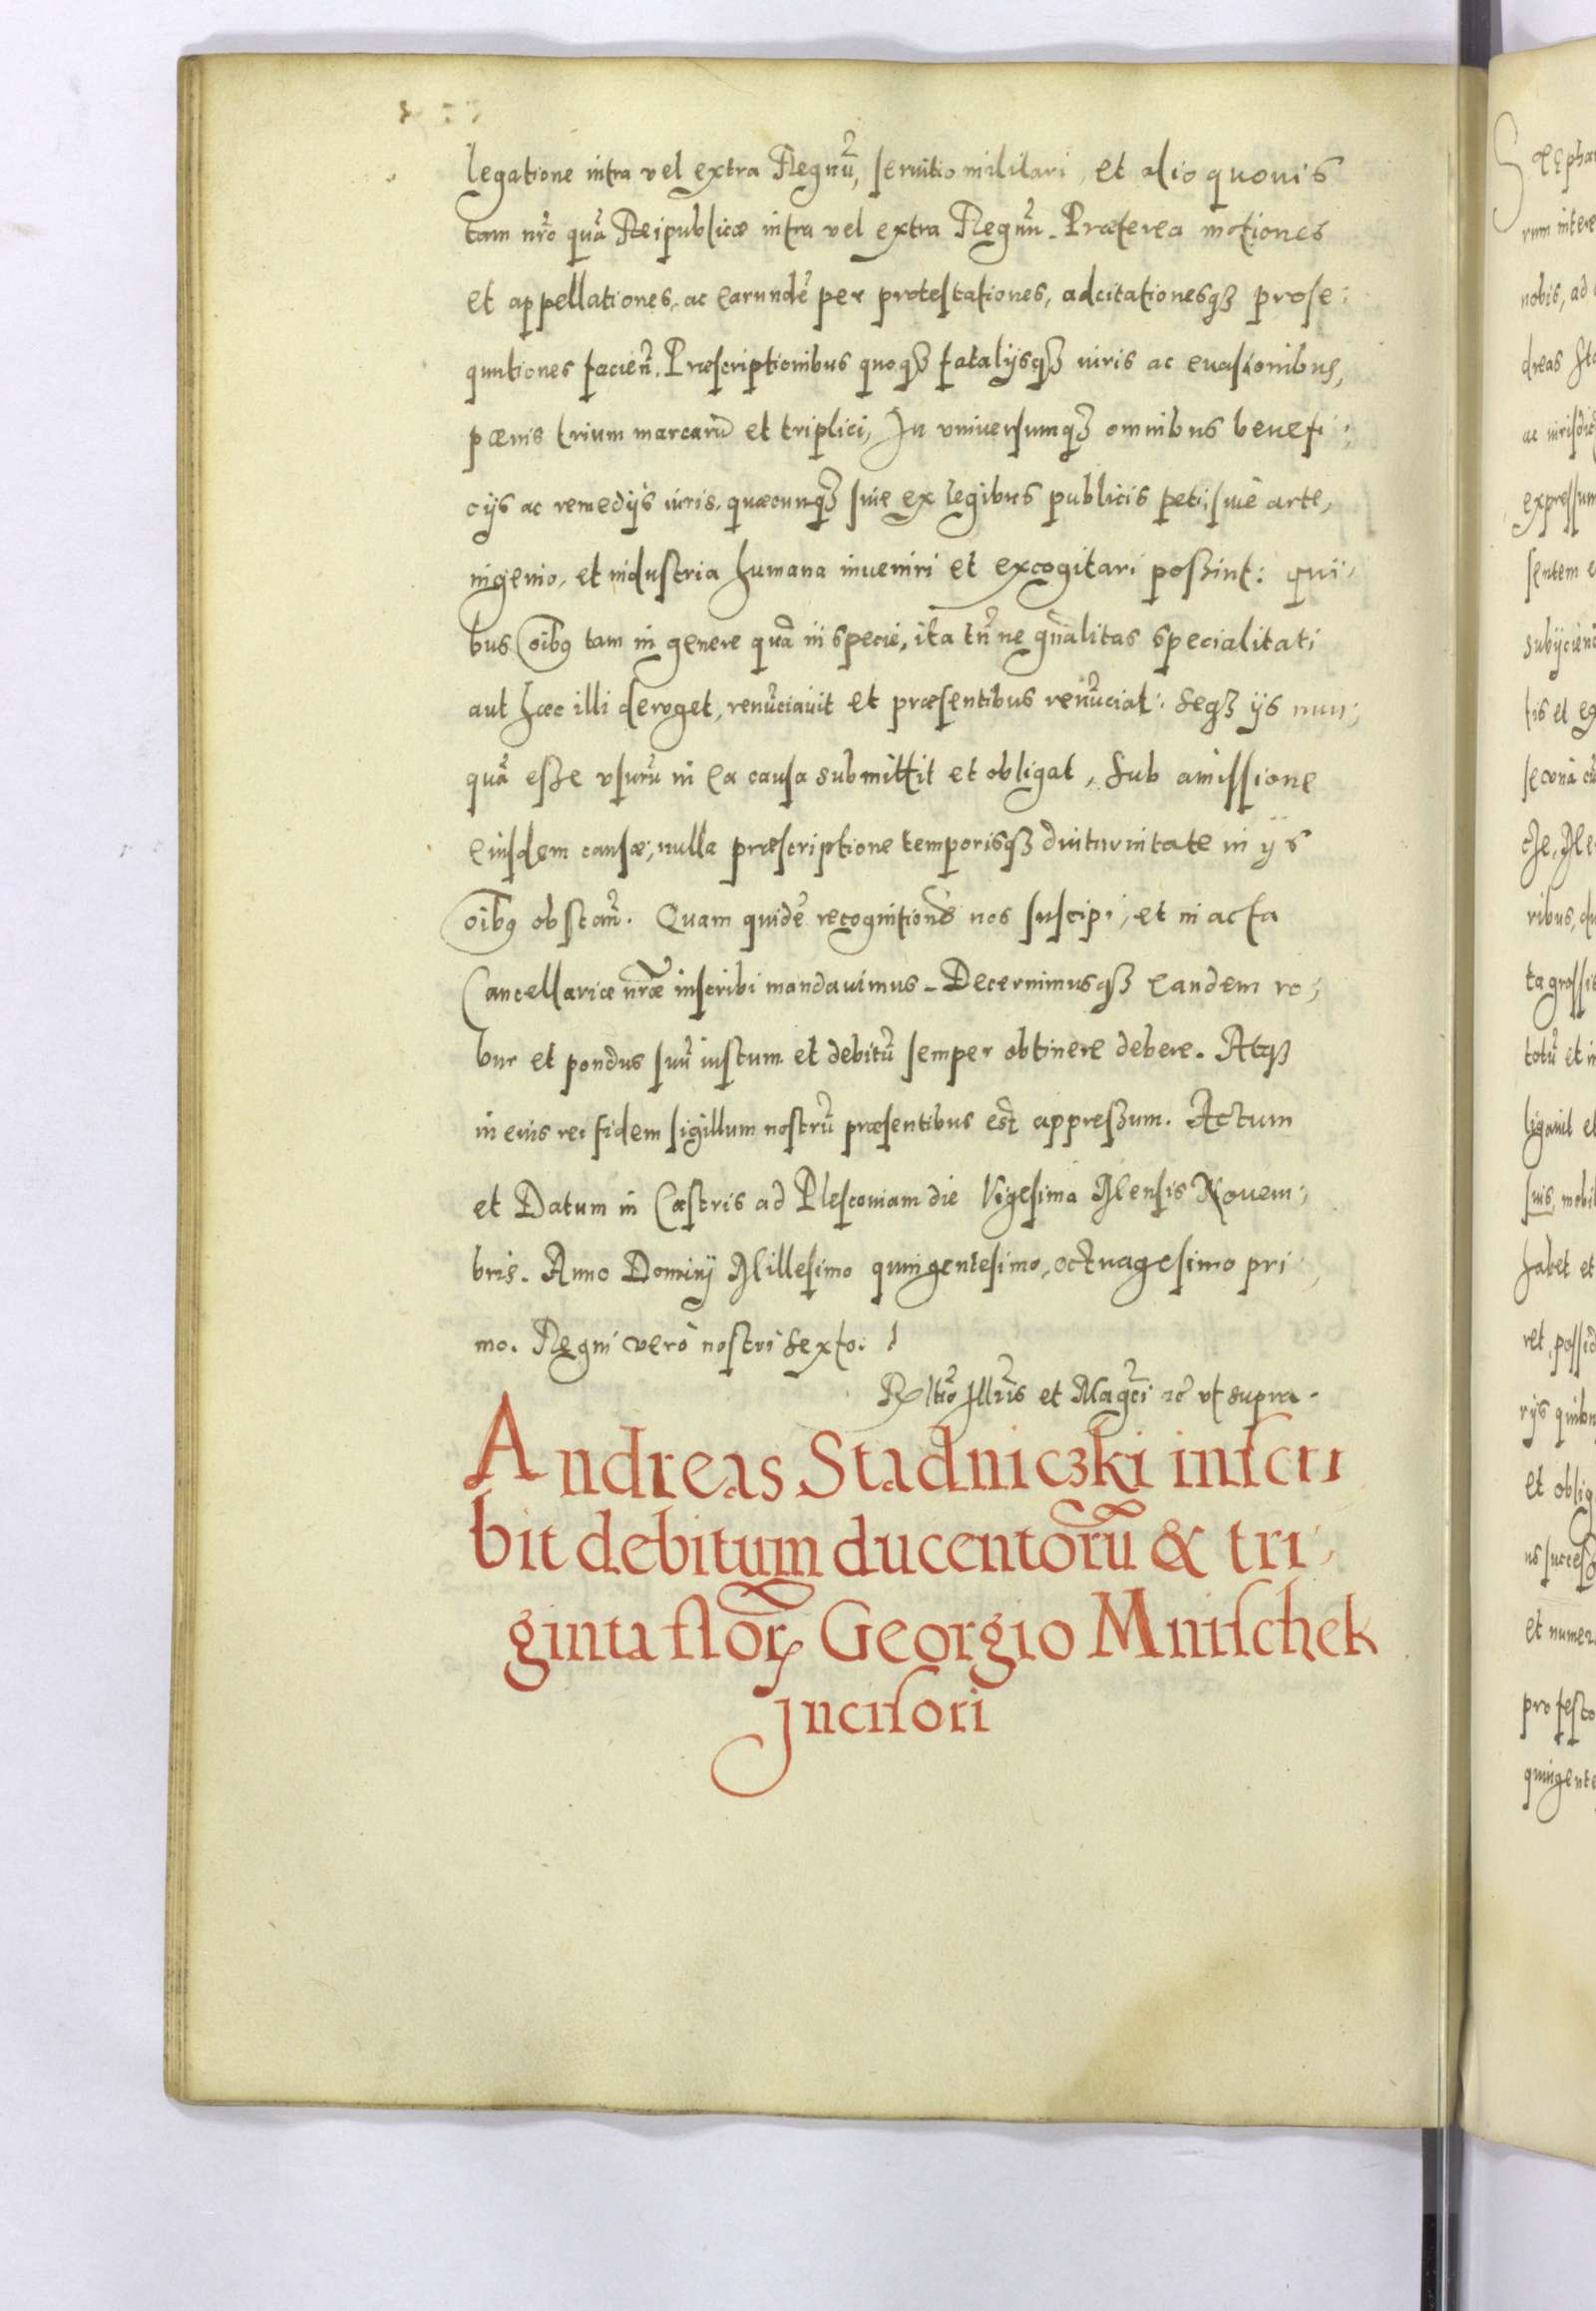 legatione intra vel extra Regnũ, seruitio militari, et alio quouis
tam nr̃o quã Reipublicæ intra vel extra Regnũ. Præterea motiones
et appellationes, ac earundẽ per protestationes, adcitationesqȝ prose:
quutiones facien̄. Præscriptionibus quoqȝ fatalijsqȝ iuris ac euasionibus,
pœnis trium marcarũ et triplici, In vniuersumqȝ omnibus benefi:
cijs ac remedijs iuris, quæcunqȝ siue ex legibus publicis peti, siue arte,
ingenio, et industria humana inueniri et excogitari poßint: qui:
bus oībꝰ tam in genere quã in specie, ita tñ ne gñalitas specialitati
aut hæc illi deroget, renũciauit et præsentibus renũciat: Seqȝ ijs nun:
quã eße vsurũ in ea causa submittit et obligat, Sub amissione
eiusdem causæ; nulla præscriptione temporisqȝ diuturnitate in ijs
oībꝰ obstan̄. Quam quidẽ recognitionẽ nos suscipi, et in acta
Cancellariæ nr̃æ inscribi mandauimus. Decernimusqȝ eandem ro:
bur et pondus suũ iustum et debitũ semper obtinere debere. Atqȝ
in eius rei fidem sigillum nostrũ præsentibus est appreßum. Actum
et Datum in Castris ad Plescouiam die Vigesima Mensis Nouem:
bris. Anno Dominij Millesimo quingentesimo, octuagesimo pri
mo. Regni verò nostri Sexto.
Rltĩo Illr̃is et Magc̃i ꝛc̃ vt supra.
Andreas Stadniczki inscri
bit debitum ducentorũ & tri:
ginta florꝝ Georgio Mnischek
Incisori